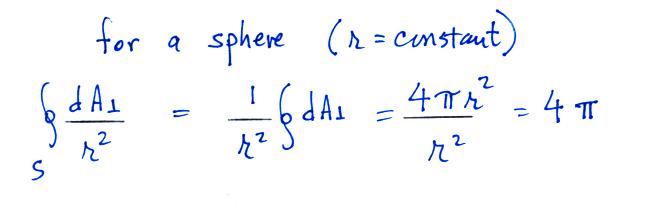 for a sphere (r = constant)
∮_S dA⊥/r² = 1/r² ∮ dA⊥ = 4πr²/r² = 4π